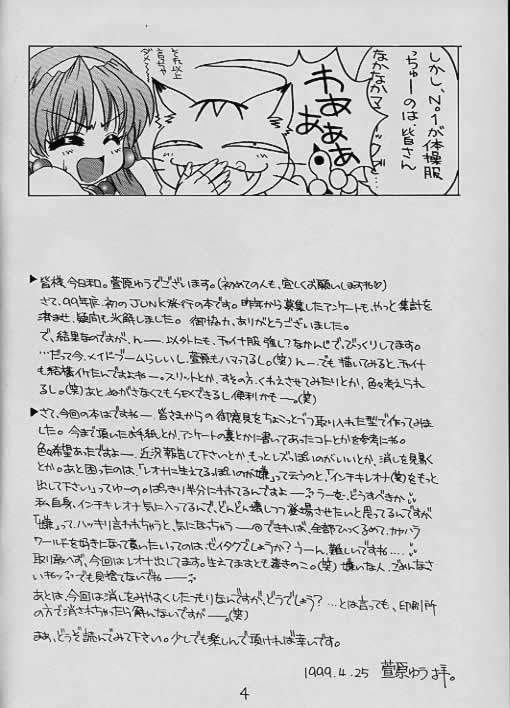 しかし、No.1が体操服
っちゅーのは、皆さん
なかなかマニ
わあぁぁ
あ
それ以上
言っちゃ
ダメ〜
▶皆様、今日和。萱原ゆうでございます。(初めての人も、宜しくお願いしますね♡)
さて、99年度、初のJUNK発行の本です。昨年から募集したアンケートも、やっと集計を
済ませ、疑問も氷解しました。御協力、ありがとうございました。
で、結果なのですが、んー…以外にも、チャイナ服強し?なかんじで、びっくりしてます。
…だって今、メイドブームらしいし、萱原もハマってるし。(笑)んー…でも描いてみると、チャイナ
も結構イケたんですよねー。スリットとか、すその方、くわえさせてみたりとか、色々考えられ
るし。(笑)あと、ぬがさなくてもSEXできるし便利かもー。(笑)
▶さて、今回の本はですねー、皆さまからの御意見をちょこっとづつ取り入れた型で作ってみま
した。今まで頂いたお手紙とか、アンケートの裏とかに書いてあったコトとかを参考にね。
色々希望あったですよー、近況報告して下さいとか、もっとレズっぽいのがいいとか、消しを見易く
とか。あと困ったのは、「レオナに生えてるっぽいのが嫌」って云うのと、「インチキレオナ(笑)をもっと
出して下さい」ってゆーの。ぱっきり半分にわれてるんですよー…うーむ、どうすべきか
私自身、インチキレオナ気に入ってるんで、どんどん嬉しく登場させたいと思ってるんですが
「嫌」って、ハッキリ言われちゃうと、気になっちゃうー できれば、全部ひっくるめて、カヤハラ
ワールドを好きになって貰いたいってのは、ゼイタクでしょうか?うーん、難しいですね….
取り敢へず、今回はレオナ出してます。生えてますとも毒きのこ。(笑)嫌いな人、ごめんなさ
いねッ でも見捨てないでねー
あとは、今回は消しをみやすくしたつもりなんですが、どうでしょう?…とは言っても、印刷所
の方で消されちゃったら解んないですがー。(笑)
まあ、どうぞ読んでみて下さい。少しでも楽しんで頂ければ幸いです。
1999.4.25 萱原ゆう拝。
4